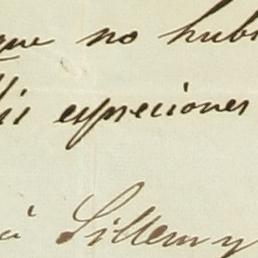 que no hubi
espreciones
à Sillem y